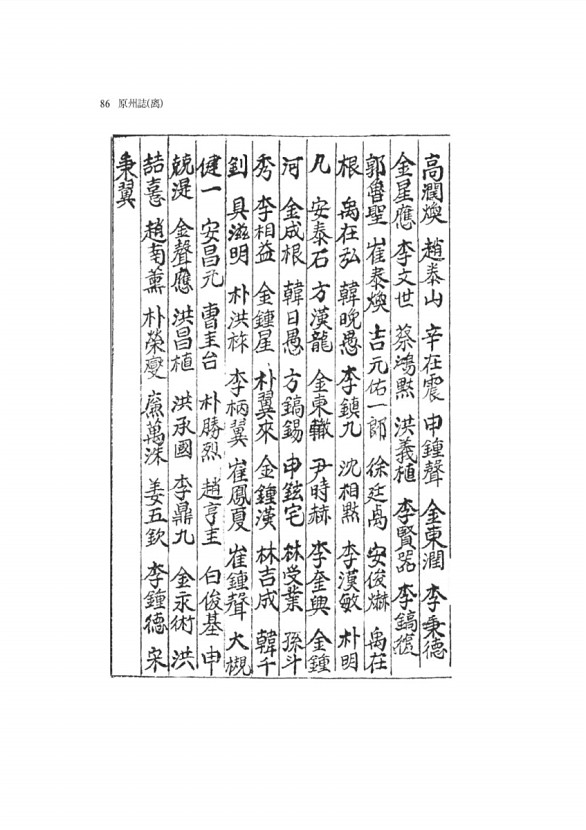 86 原州誌(离)
高潤煥 趙泰山 辛在震 申鍾聲 金東潤 李秉德
金星應 李文世 蔡鴻㸃 洪義植 李賢器 李鎬復
郭魯聖 崔泰煥 吉元佑一郎 徐廷禹 安俊爀 禹在
根 禹在弘 韓晩愚 李鎮九 沈相㸃 李漢敏 朴明
凡 安泰石 方漢龍 金東轍 尹時赫 李奎興 金鍾
河 金成根 韓日愚 方鎬錫 申鉉宅 林受業 孫斗
秀 李相益 金鍾星 朴翼來 金鍾漢 林吉成 韓千
釗 具滋明 朴洪祚 李柄翼 崔鳳夏 崔鍾聲 大槻
健一 安昌元 曺圭台 朴勝烈 趙亨圭 白俊基 申
兢湜 金聲應 洪昌植 洪承國 李鼎九 金永術 洪
喆憙 趙南薰 朴榮燮 廉萬洙 姜五欽 李鍾德 宋
秉翼